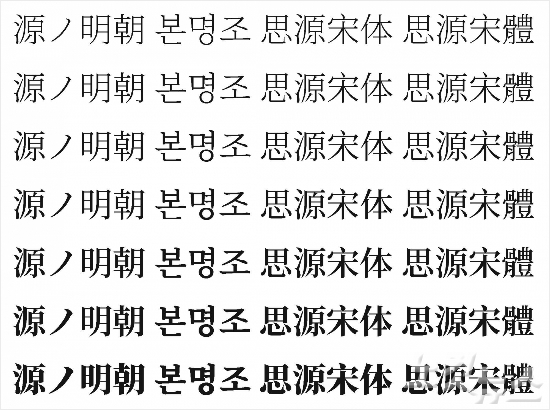 源ノ明朝 본명조 思源宋体 思源宋體
源ノ明朝 본명조 思源宋体 思源宋體
源ノ明朝 본명조 思源宋体 思源宋體
源ノ明朝 본명조 思源宋体 思源宋體
源ノ明朝 본명조 思源宋体 思源宋體
源ノ明朝 본명조 思源宋体 思源宋體
源ノ明朝 본명조 思源宋体 思源宋體